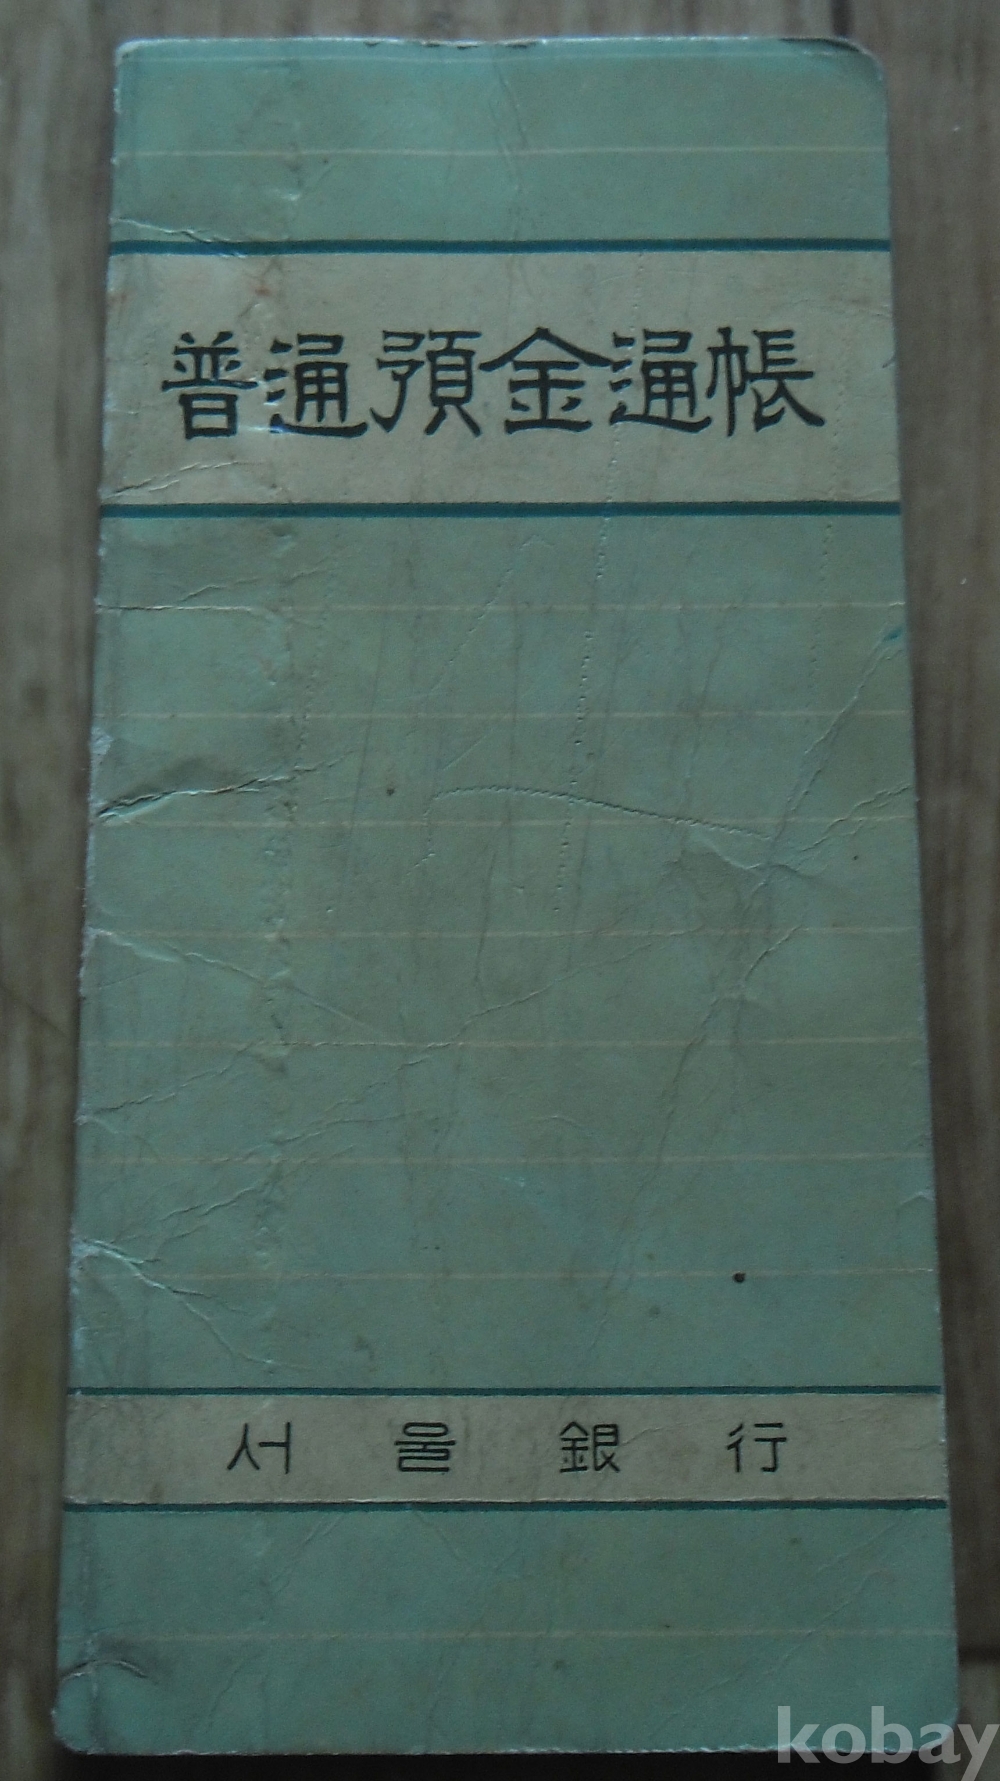 普通預金通帳
서울銀行
kobay